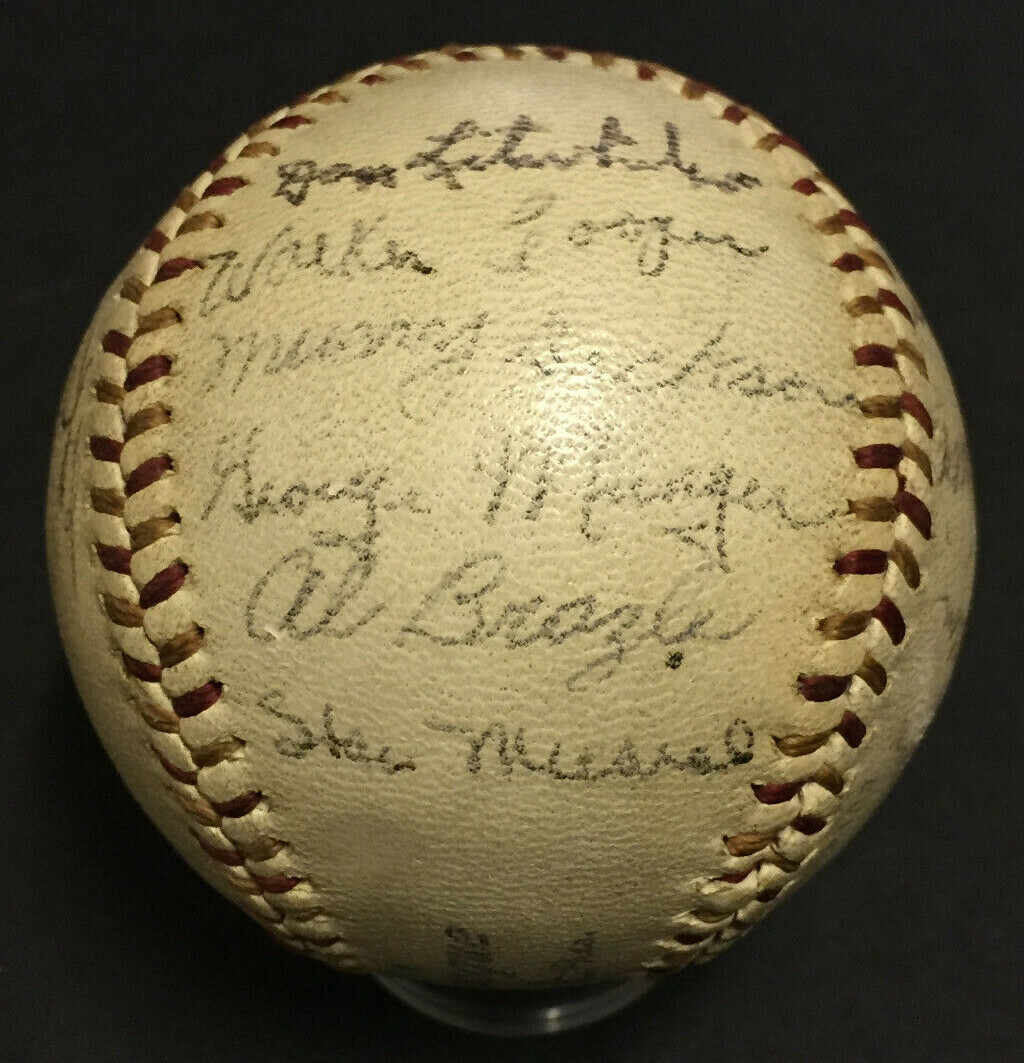 Dan Litwhiler
Walker Cooper
Murry Dickson
George Munger
Al Brazle
Stan Musial